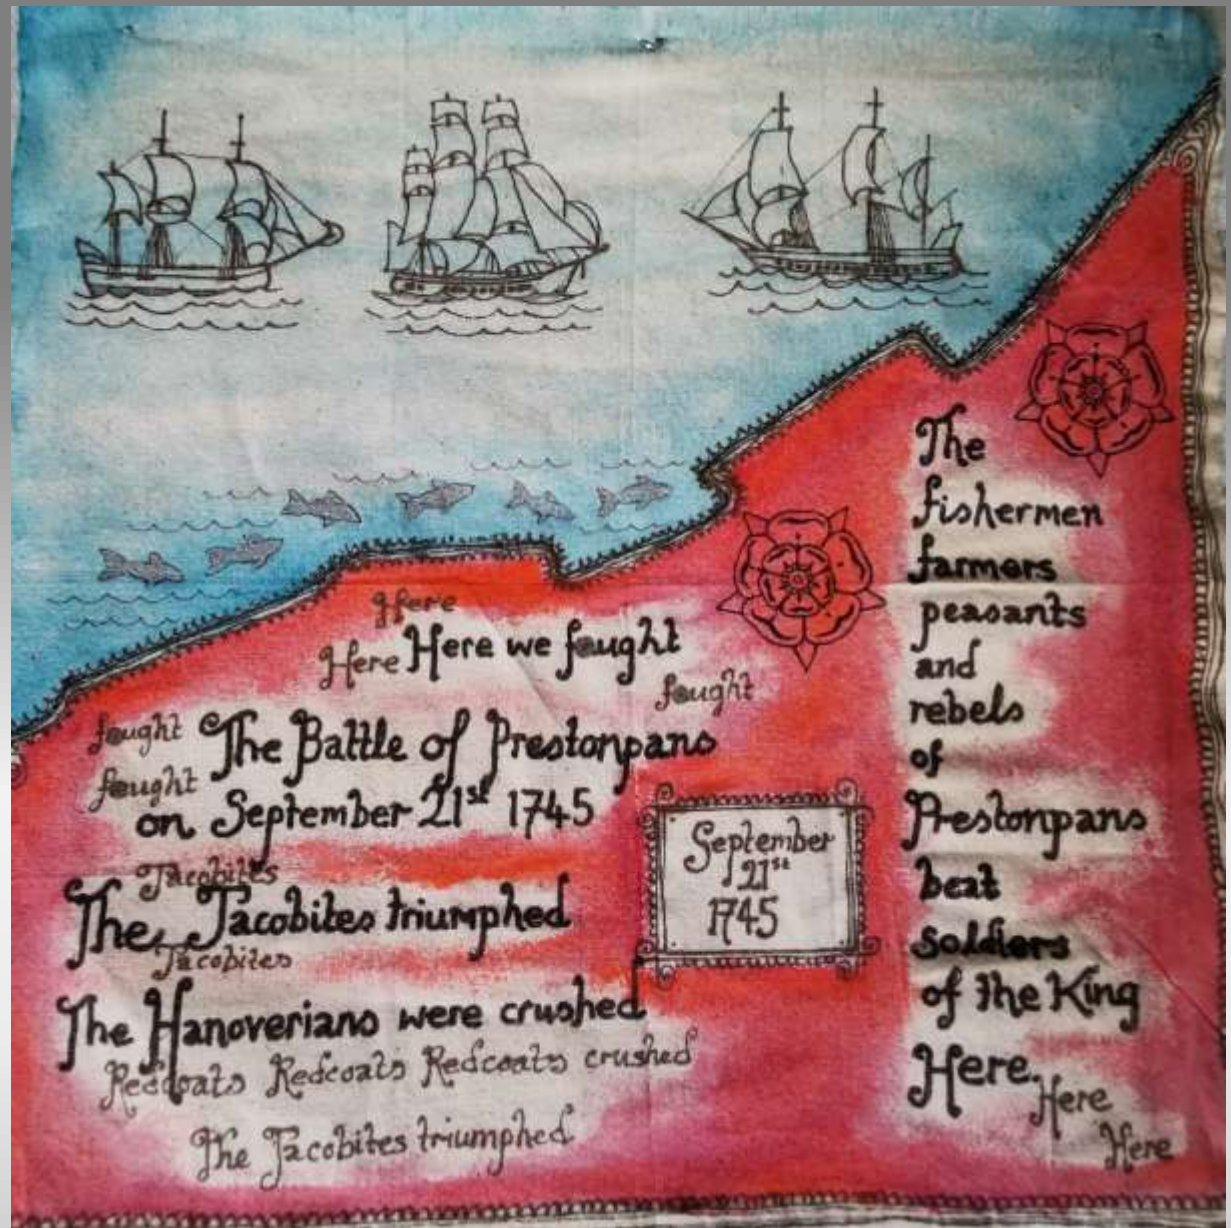 Here
Here Here we fought
fought
fought The Battle of Prestonpans
fought on September 21st 1745
Jacobites
The Jacobites triumphed
Jacobites
The Hanoverians were crushed
Redcoats Redcoats Redcoats crushed
The Jacobites triumphed
September
21st
1745
The
fishermen
farmers
peasants
and
rebels
of
Prestonpans
beat
soldiers
of the King
Here.
Here
Here